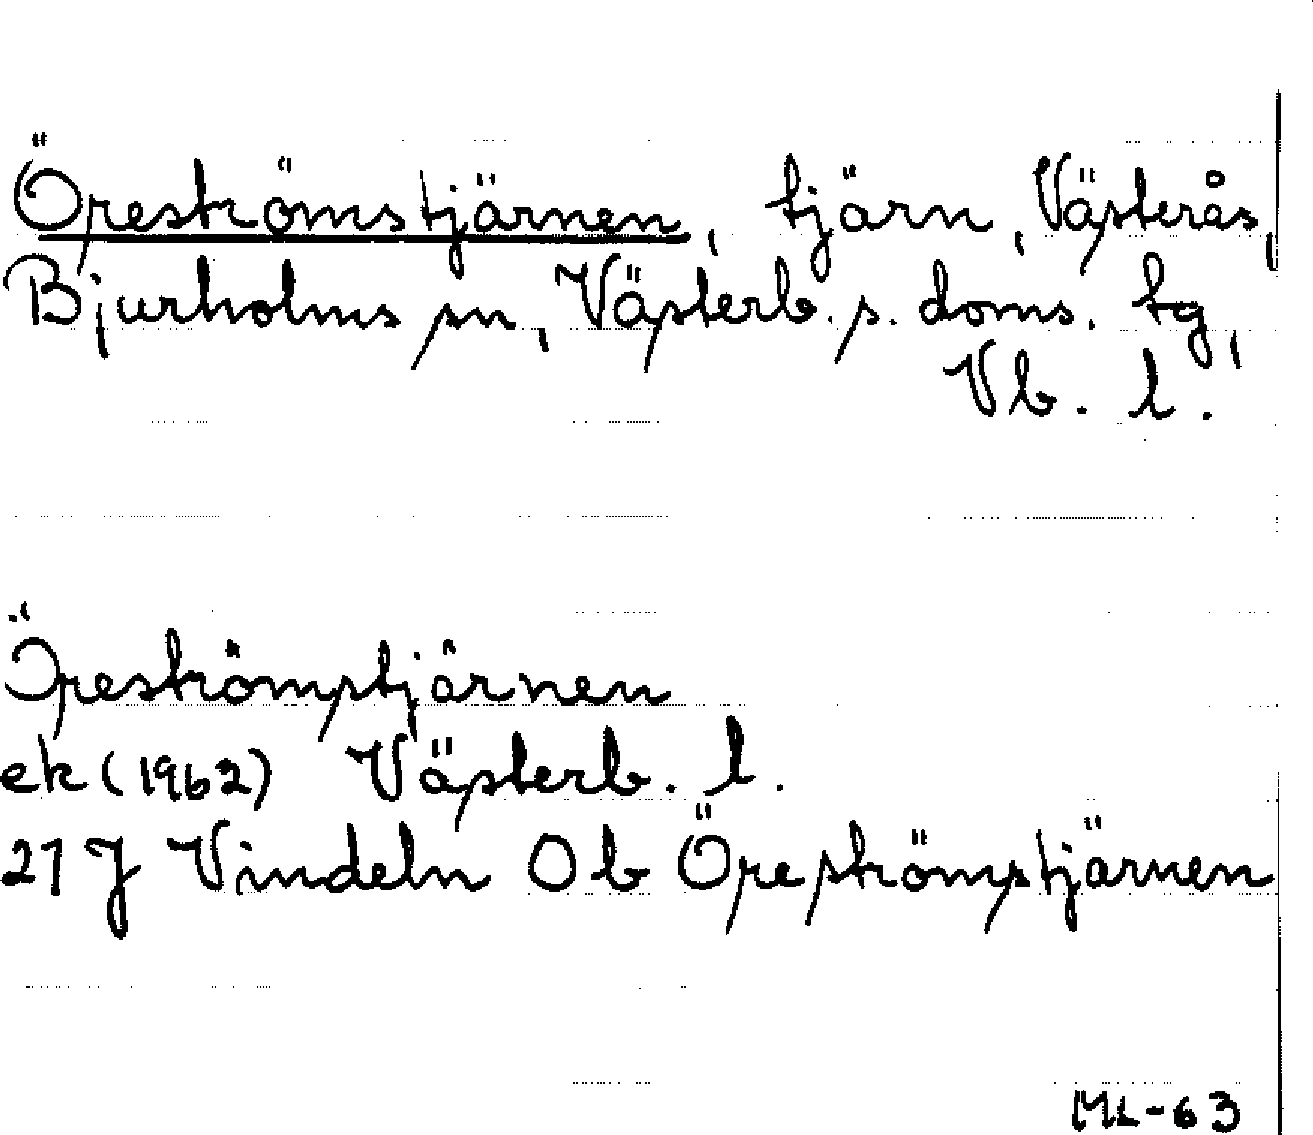 Öreströmstjärnen, tjärn, Västerås,
Bjurholms sn, Västerb. s. doms. tg,
Vb. l.
Öreströmstjärnen
ek (1962) Västerb. l.
21 J Vindeln Ob Öreströmstjärnen
ML-63